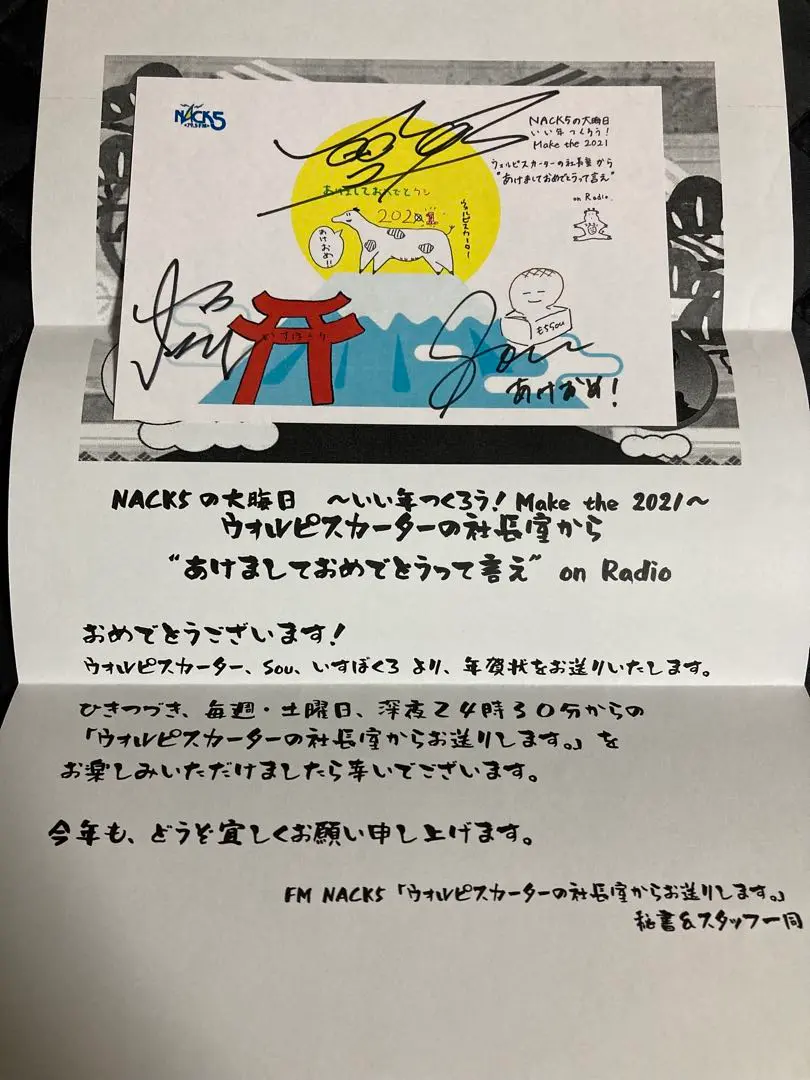 NACK5
79.5 FM
NACK5の大晦日
いい年つくろう!
Make the 2021
ウォルピスカーターの社長室から
"あけましておめでとうって言え"
on Radio
あけましておめでとウシ
202
ウォルピスカーター
あけおめ!!
いすぼくろ
もちSou
Sou
あけおめ!
NACK5の大晦日 ~いい年つくろう! Make the 2021~
ウォルピスカーターの社長室から
"あけましておめでとうって言え" on Radio
おめでとうございます!
ウォルピスカーター、Sou、いすぼくろ より、年賀状をお送りいたします。
ひきつづき、毎週・土曜日、深夜24時30分からの
「ウォルピスカーターの社長室からお送りします。」を
お楽しみいただけましたら幸いでございます。
今年も、どうぞ宜しくお願い申し上げます。
FM NACK5「ウォルピスカーターの社長室からお送りします。」
秘書&スタッフ一同